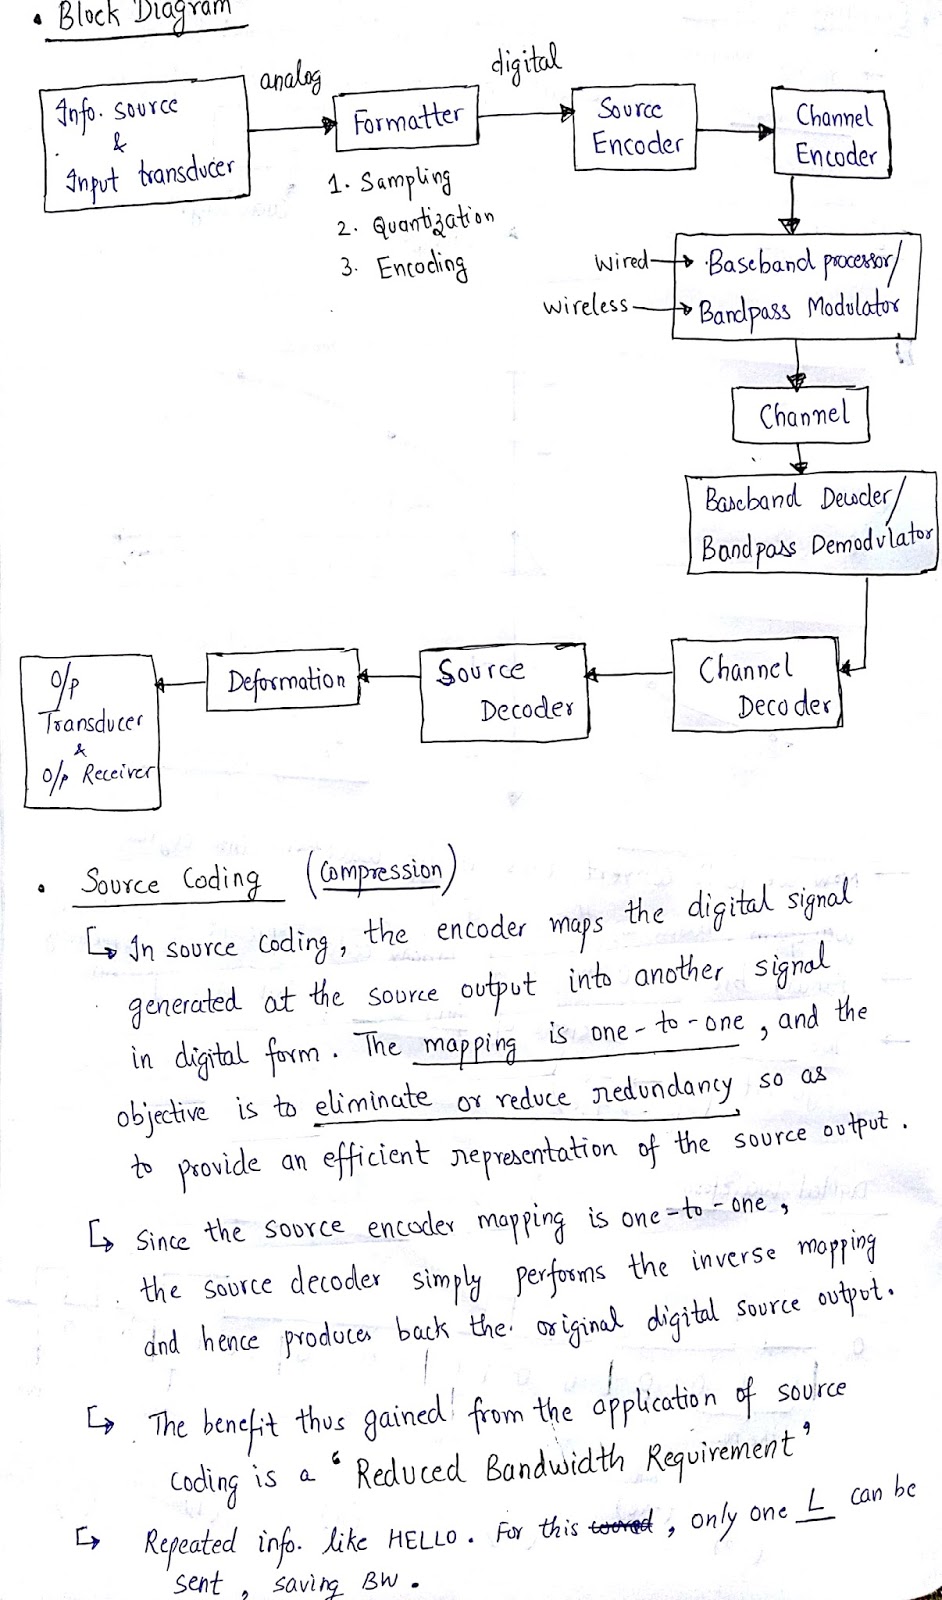 • Block Diagram
analog
digital
Info. source
&
Input transducer
Formatter
Source
Encoder
Channel
Encoder
1. Sampling
2. Quantization
3. Encoding
wired
Baseband processor/
wireless
Bandpass Modulator
Channel
Baseband Decoder/
Bandpass Demodulator
O/p
Transducer
&
O/p Receiver
Deformation
Source
Decoder
Channel
Decoder
• Source Coding (Compression)
↳ In source coding, the encoder maps the digital signal
generated at the source output into another signal
in digital form. The mapping is one-to-one, and the
objective is to eliminate or reduce redundancy so as
to provide an efficient representation of the source output.
↳ Since the source encoder mapping is one-to-one,
the source decoder simply performs the inverse mapping
and hence produces back the original digital source output.
↳ The benefit thus gained from the application of source
coding is a 'Reduced Bandwidth Requirement'
↳ Repeated info. like HELLO. For this, only one L can be
sent, saving BW.